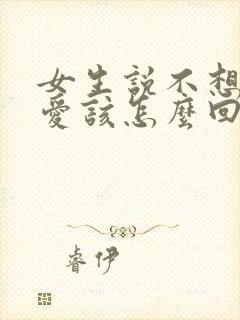 女生説不想
愛該怎麼回
睿伊